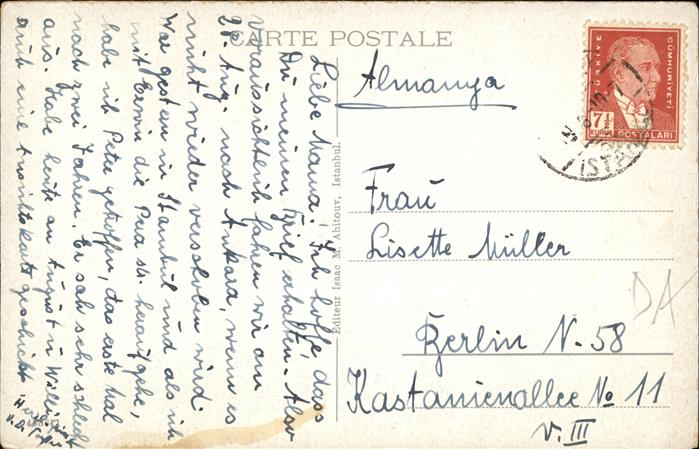 CARTE POSTALE
Liebe Mama! Ich hoffe, dass
Du meinen Brief erhalten. Also
voraussichtlich fahren wir am
28. Aug. nach Ankara, wenn es
nicht wieder verschoben wird.
War gestern in Stambul und als ich
mit Erwin die Pera str. heraufgehe,
habe ich Peter getroffen, das erste Mal
nach zwei Jahren. Er sah sehr schlecht
aus. Habe heute an August u Willi
auch eine Ansichtskarte geschickt
Herzl.
Editeur Isaac M. Ahitouv, Istanbul.
Almanya
TÜRKİYE
CÜMHURİYETİ
7½
KURUŞ
POSTALARI
İSTA
Frau
Lisette Müller
Berlin N. 58
Kastanienallee No 11
v. III
DA